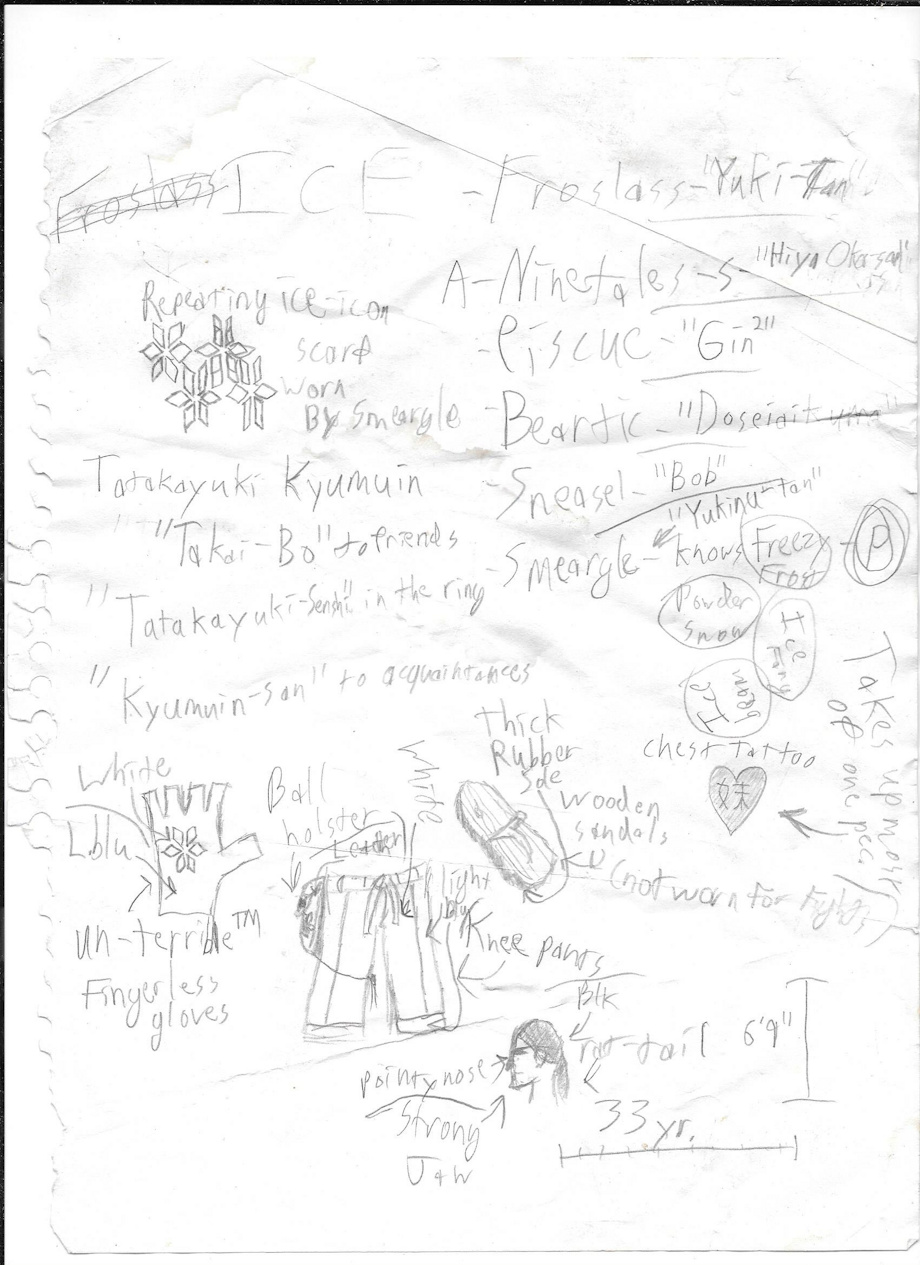 Froslass ICE - Froslass - "Yuki-Tan"
A-Ninetales-s-"Hiya Oka-san"
Repeating ice-icon
scarf
worn
By Smeargle
- Piscuc - "Gin²"
- Beartic - "Doseiait
- Sneasel - "Bob"
"Yukinu-tan"
- Smeargle - knows Freezy Frost - P
Powder Snow
Ice Fang
Ice Beam
Tatakayuki Kyumuin
"Takai-Bo" to friends
"Tatakayuki-Senshi" in the ring
"Kyumuin-san" to acquaintances
chest tattoo
妹
Takes up most
of one pec
White
Lblu
un-terrible™
Fingerless
gloves
Ball
holster
Leather
White
light
blu
Knee pants
Thick
Rubber
Sole
Wooden
sandals
(not worn for fights)
Blk
rat-tail
pointy nose
Strong
Jaw
6'9"
33 yr.